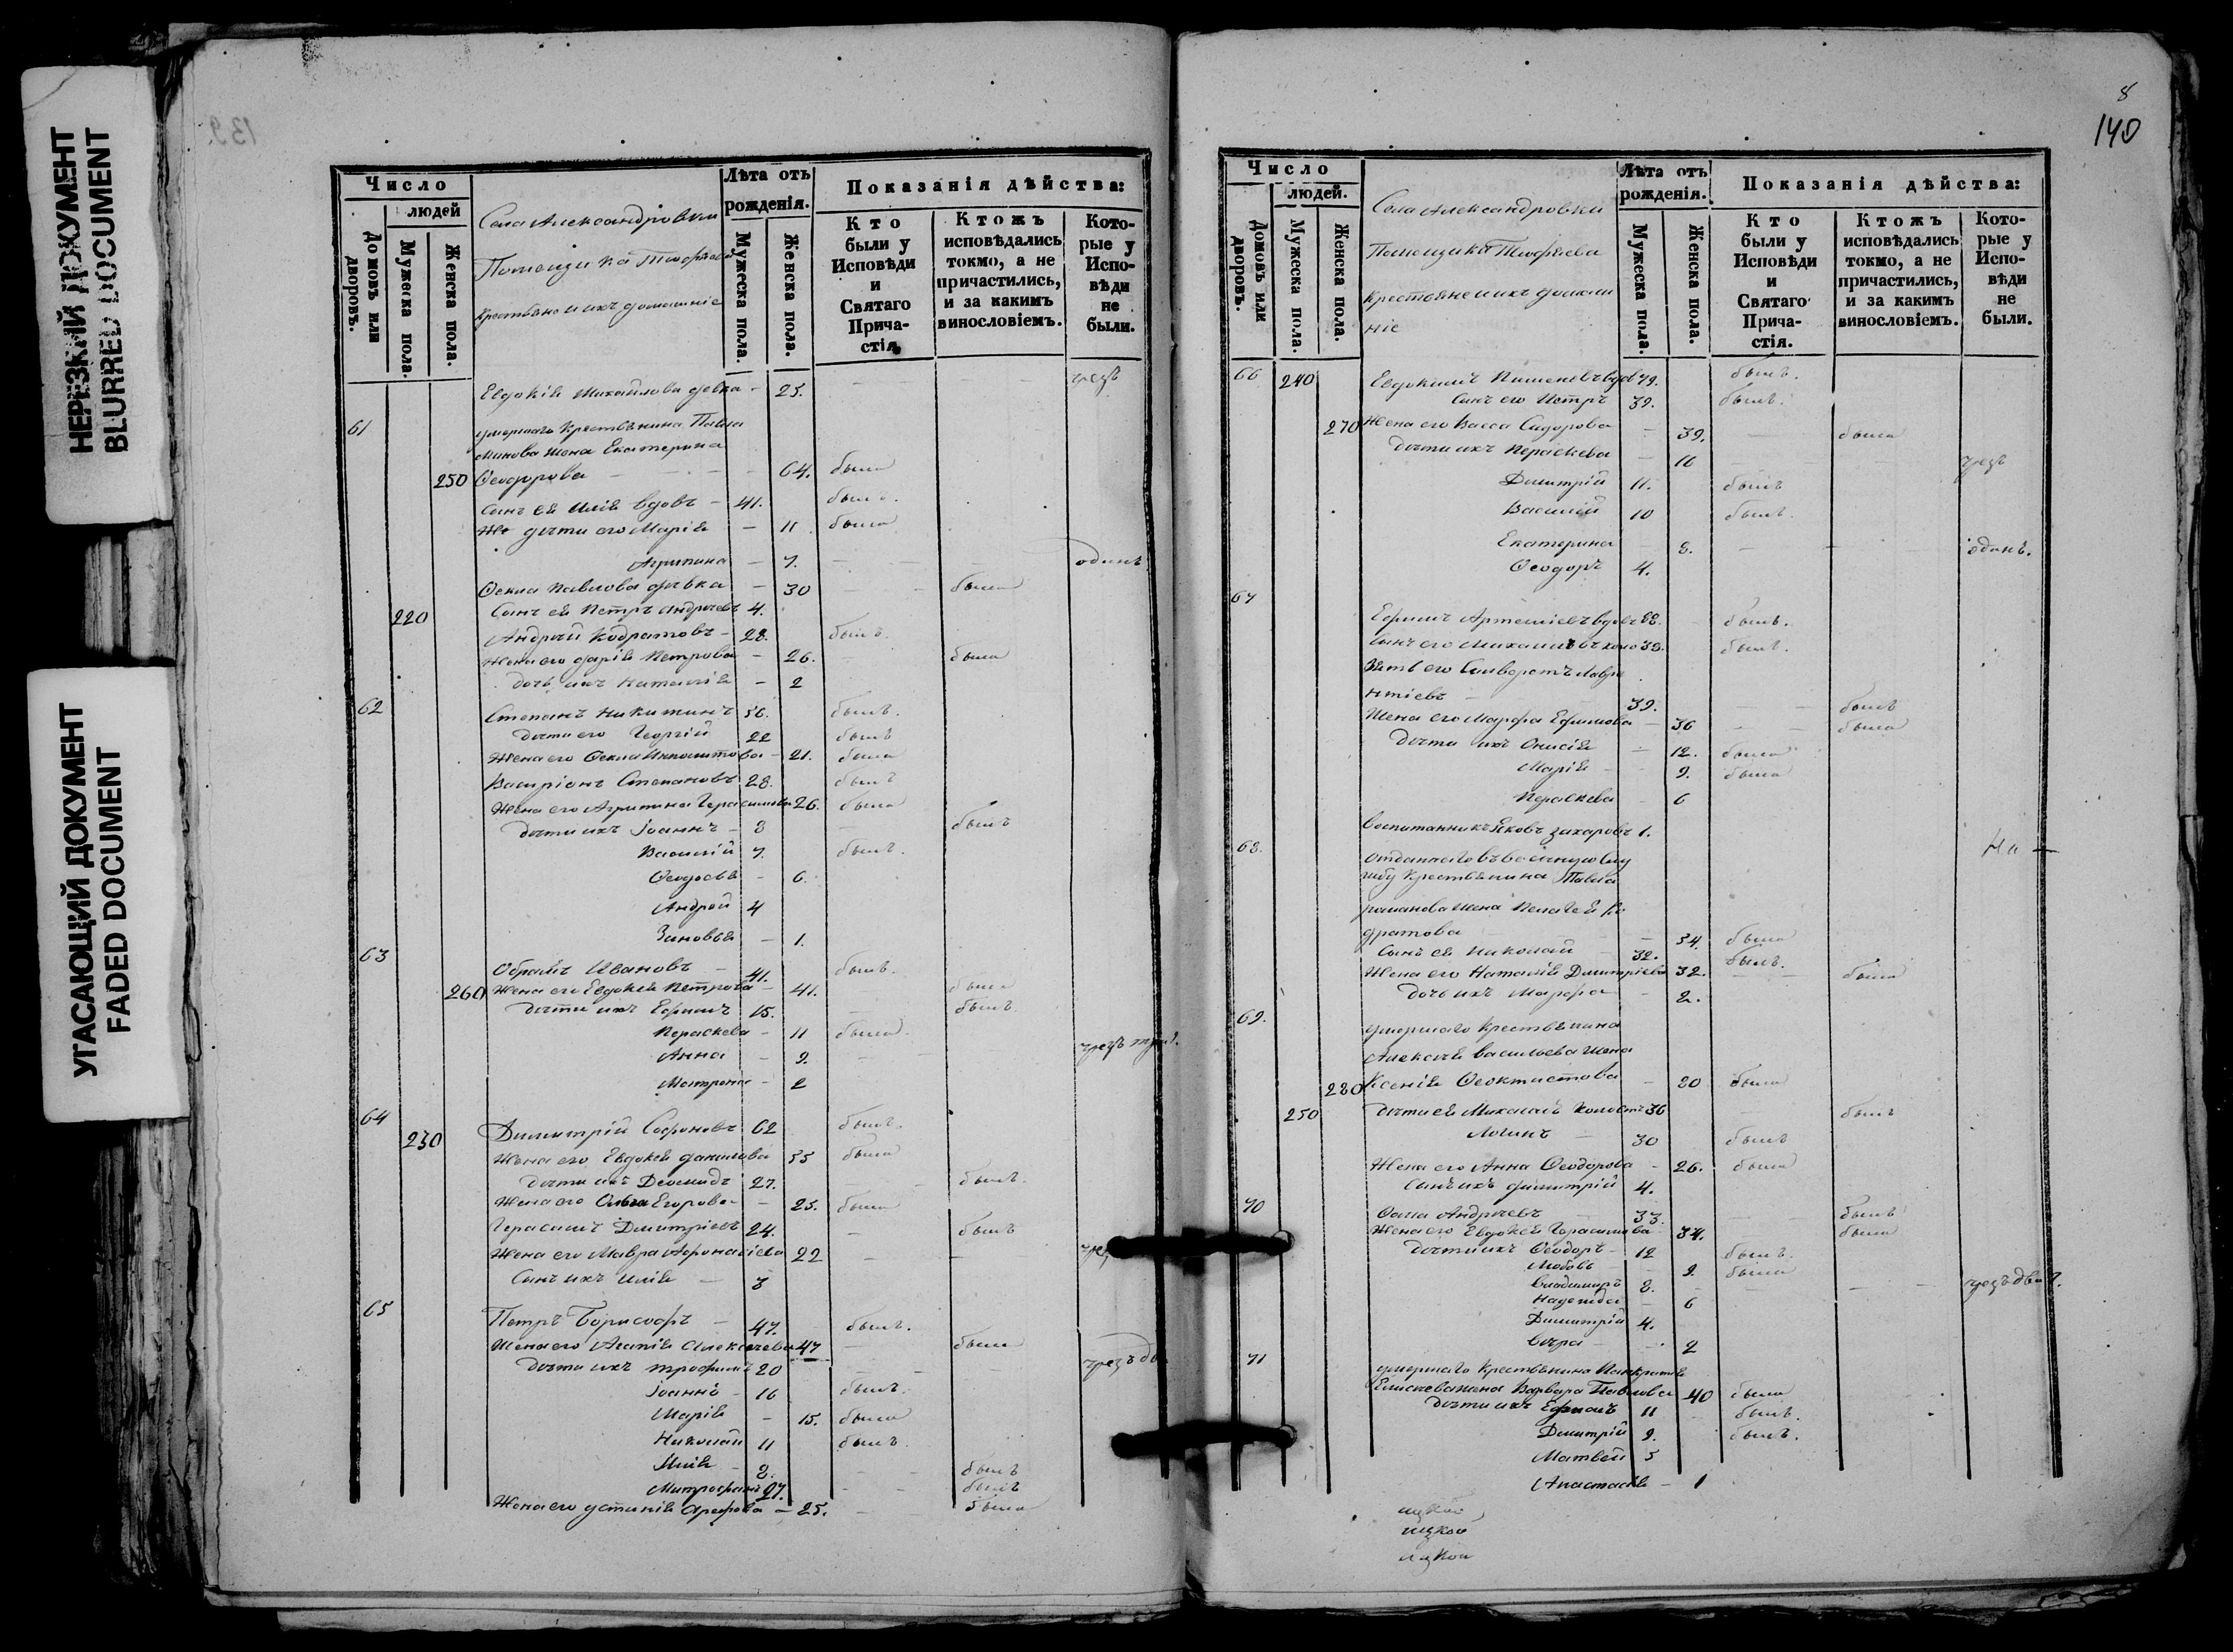 НЕРЕЗКИЙ ДОКУМЕНТ
BLURRED DOCUMENT
УГАСАЮЩИЙ ДОКУМЕНТ
FADED DOCUMENT
139.
Число
людей
Домовъ или дворовъ.
Мужеска пола.
Женска пола.
Села Александровки
Помещика
крестьяне и ихъ домашніе
Лѣта отъ рожденія.
Мужеска пола.
Женска пола.
Показанія дѣйства:
Кто были у Исповѣди и Святаго Причастія.
Ктожъ исповѣдались токмо, а не причастились, и за какимъ винословіемъ.
Которые у Исповѣди не были.
Евдокія Михайлова девка - 25.
61 умершаго крестьянина Павла
жена Екатерина
250 Ѳеодорова - 64. была
Сынъ ея Илія вдовъ - 41. былъ.
дѣти его Марія - 11 была
Агрипина - 7. одинъ
Ѳекла Павлова дѣвка - 30 была
220 Сынъ ея Петръ Андреевъ 4.
Андрей Кодратовъ - 28. былъ.
Жена его Дарія Петрова - 26. была
дочь ихъ Наталія - 2
62 Степанъ Никитинъ 56. былъ.
дѣти его Георгій 22 былъ
Жена его Ѳекла - 21. была
Степановъ 28. былъ
Жена его Агрипина Герасимова 26. была
дѣти ихъ Іоаннъ - 8 былъ
Василій 7. былъ.
Ѳеодосья - 6.
Андрей 4
Зиновья - 1.
63 Ивановъ - 41. былъ.
260 Жена его Евдокея Петрова - 41. была
дѣти ихъ Ефимъ 15. былъ.
Параскева - 11 была
Анна - 9. чрезъ
Матрона - 2
64 230 Димитрій Софоновъ 62 былъ.
Жена его Евдокея Данилова 55 была
дѣти ихъ Деомидъ 27. былъ.
Жена его Ольга Егорова - 25. была
Герасимъ Димитріевъ 24. былъ
Жена его Мавра Афонасіева 22
Сынъ ихъ Илія - 3
65 Петръ Борисовъ - 47. былъ.
Жена его Агапія Алексеева 47 была
дѣти ихъ Трофимъ 20 чрезъ
Іоаннъ - 16 былъ.
Марія - 15. была
Николай 11 былъ.
Илія - 8. былъ
Митрофанъ 27. былъ
Жена его Устинія Арефова - 25. была
8
140
Число
людей.
Домовъ или дворовъ.
Мужеска пола.
Женска пола.
Села Александровки
Помещика
Крестьяне и ихъ домаш
ніе
Лѣта отъ рожденія.
Мужеска пола.
Женска пола.
Показанія дѣйства:
Кто были у Исповѣди и Святаго Причастія.
Ктожъ исповѣдались токмо, а не причастились, и за какимъ винословіемъ.
Которые у Исповѣди не были.
66 240 Евдокимъ Пименовъ вдовъ 79. былъ.
Сынъ его Петръ 39. былъ.
270 Жена его Васса Сидорова - 39. была
дѣти ихъ Параскева - 16 чрезъ
Димитрій 11. былъ
Василій 10 былъ.
Екатерина - 8. одинъ.
Ѳеодоръ 4.
67 Ефимъ Артеміевъ вдовъ 68. былъ.
Сынъ его Михаилъ 38. былъ.
Зять его Лавре
нтіевъ 39. былъ
Жена его Марфа Ефимова - 36 была
дѣти ихъ Анисія - 12. была
Марія - 9. была
Параскева - 6
воспитанникъ Яковъ Захаровъ 1.
68. отданнаго въ военную слу
жбу крестьянина Павла
Романова жена Пелагея Ко
дратова - 54. была
Сынъ ея Николай - 32. былъ.
Жена его Наталія Димитріева 32. была
дочь ихъ Марфа - 2.
69. умершаго крестьянина
Алексея Васильева жена
280 Ксенія Ѳеоктистова - 80 была
250 дѣти ея Михаилъ холостъ 36 былъ
Логинъ - 30 былъ
Жена его Анна Ѳеодорова - 26. была
Сынъ ихъ Димитрій 4.
70 Ѳома Андреевъ - 33. былъ
Жена его Евдокея Герасимова 34. была
дѣти ихъ Ѳеодоръ - 12 былъ.
Любовь - 9. была
Владимиръ 8. чрезъ
Надежда - 6
Димитрій 4.
Вѣра - 2
71 умершаго крестьянина
жена Варвара Павлова 40 была
дѣти ихъ Ефимъ 11 былъ.
Димитрій 9. былъ.
Матвей 5
Анастасія - 1